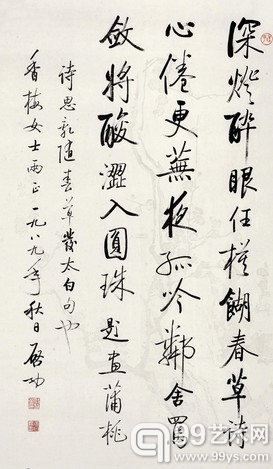 深燈醉眼任模餬春草詩
心倦更蕪夜〻孤吟鄰舍罵
斂將酸澀入圓珠 題畫蒲桃
詩思亂隨春草發太白句也
香梅女士兩正 一九八九年秋日 啓功
99艺术网
www.99ys.com